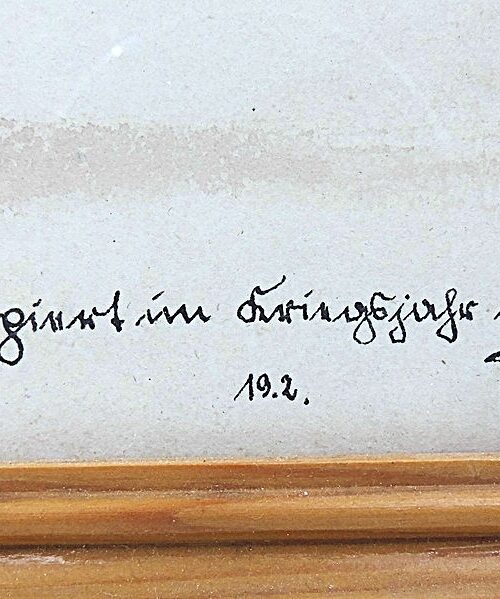 piert im Kriegsjahr
19.2.